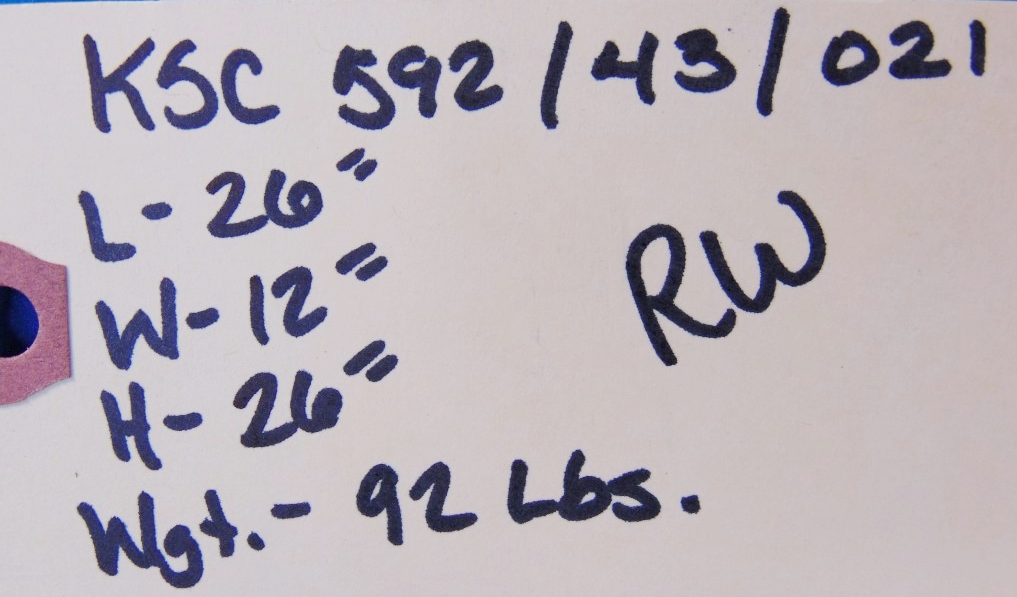 KSC 592/43/021
L- 26"
W- 12"
RW
H- 26"
Wgt.- 92 Lbs.